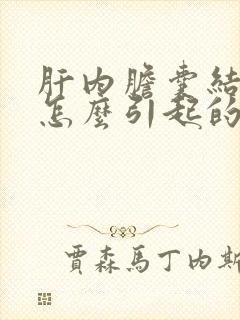 肝内膽囊結
怎麼引起的
賈森馬丁内斯